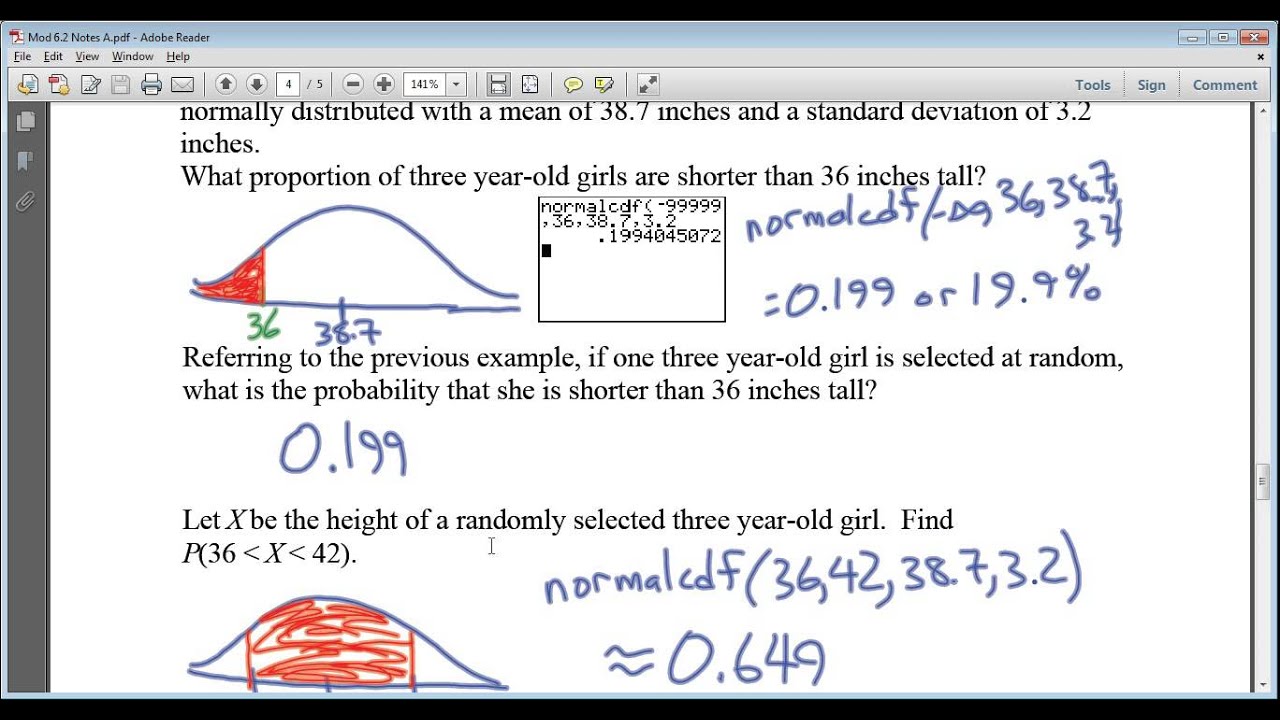 Mod 6.2 Notes A.pdf - Adobe Reader
File Edit View Window Help
4 / 5 141% Tools Sign Comment
normally distributed with a mean of 38.7 inches and a standard deviation of 3.2
inches.
What proportion of three year-old girls are shorter than 36 inches tall?
normalcdf(-99999
,36,38.7,3.2
.1994045072
normalcdf(-∞,36,38.7,
3.2)
=0.199 or 19.9%
36 38.7
Referring to the previous example, if one three year-old girl is selected at random,
what is the probability that she is shorter than 36 inches tall?
0.199
Let X be the height of a randomly selected three year-old girl. Find
P(36 < X < 42).
normalcdf(36,42,38.7,3.2)
≈0.649